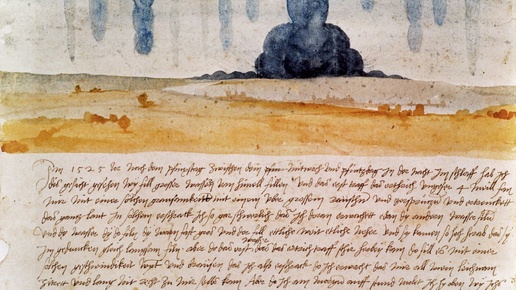 Im 1525 Jor nach dem pfinxstag zwischen dem Mitwoch und pfintzdag in der nacht im schlaff hab ich
dis gesicht gesehen wy fill grosser wassern vom himell fillen Und das erst traff das erthrich ungefer 4 meill fan
mir mit einer solchen grausamkeitt mit einem uber grossem raüschn und zersprützen und ertrenckett
das gannz lant In solchem erschrack ich so gar schwerlich das ich doran erwachett edan dy andern wasser filn
Und dy wasser dy do filn dy warn fast gros und der fill ettliche weit etliche neher und sy kamen so hoch herab das sy
im gedancken gleich langsam filn aber do das erst wasser das das ertrich traff schir herbey kam do fill es mit einer
solchen geschwindikeit wynt und braüsen das ich also erschrack do ich erwacht das mir all mein leichnam
zitrett und lang nit recht zu mir selbs kam Aber do ich am morgn auff stund molet ich hy oben wy ichs